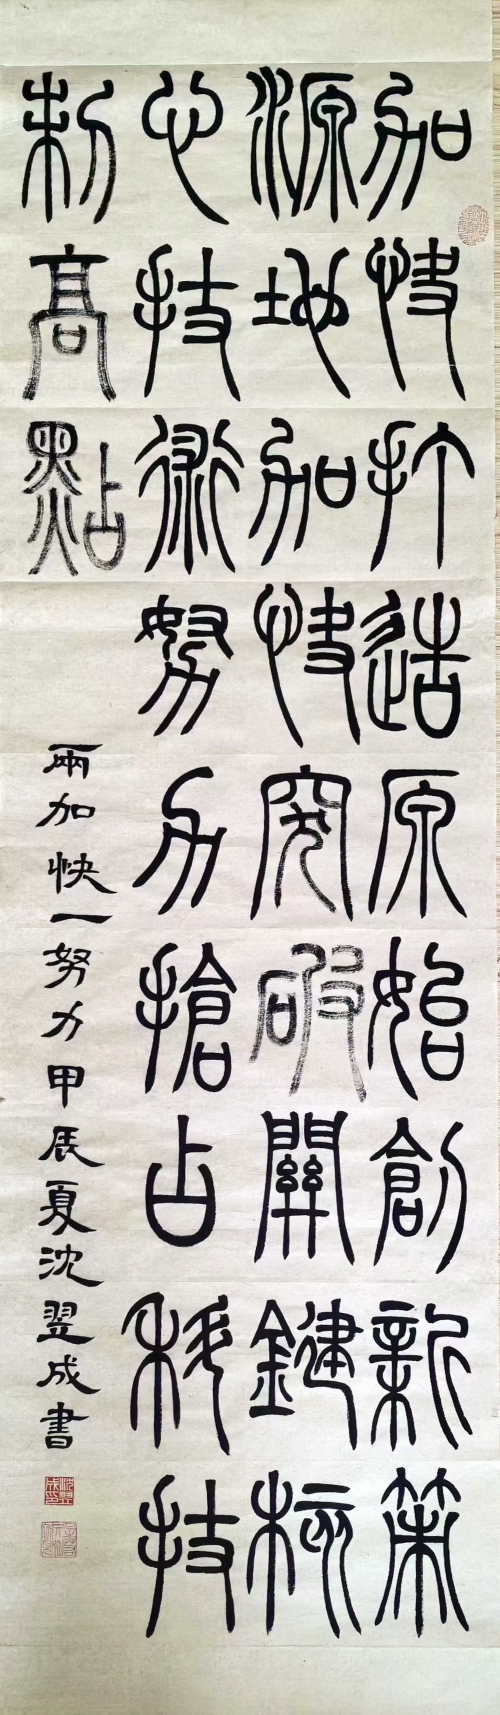 加快打造原始創新策
源地加快突破關鍵核
心技術努力搶占科技
制高點
兩加快一努力甲辰夏沈翌成書